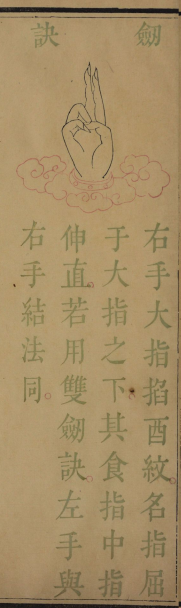 劒訣
右手大指掐酉紋。名指屈
于大指之下。其食指中指
伸直。若用雙劒訣。左手與
右手結法同。